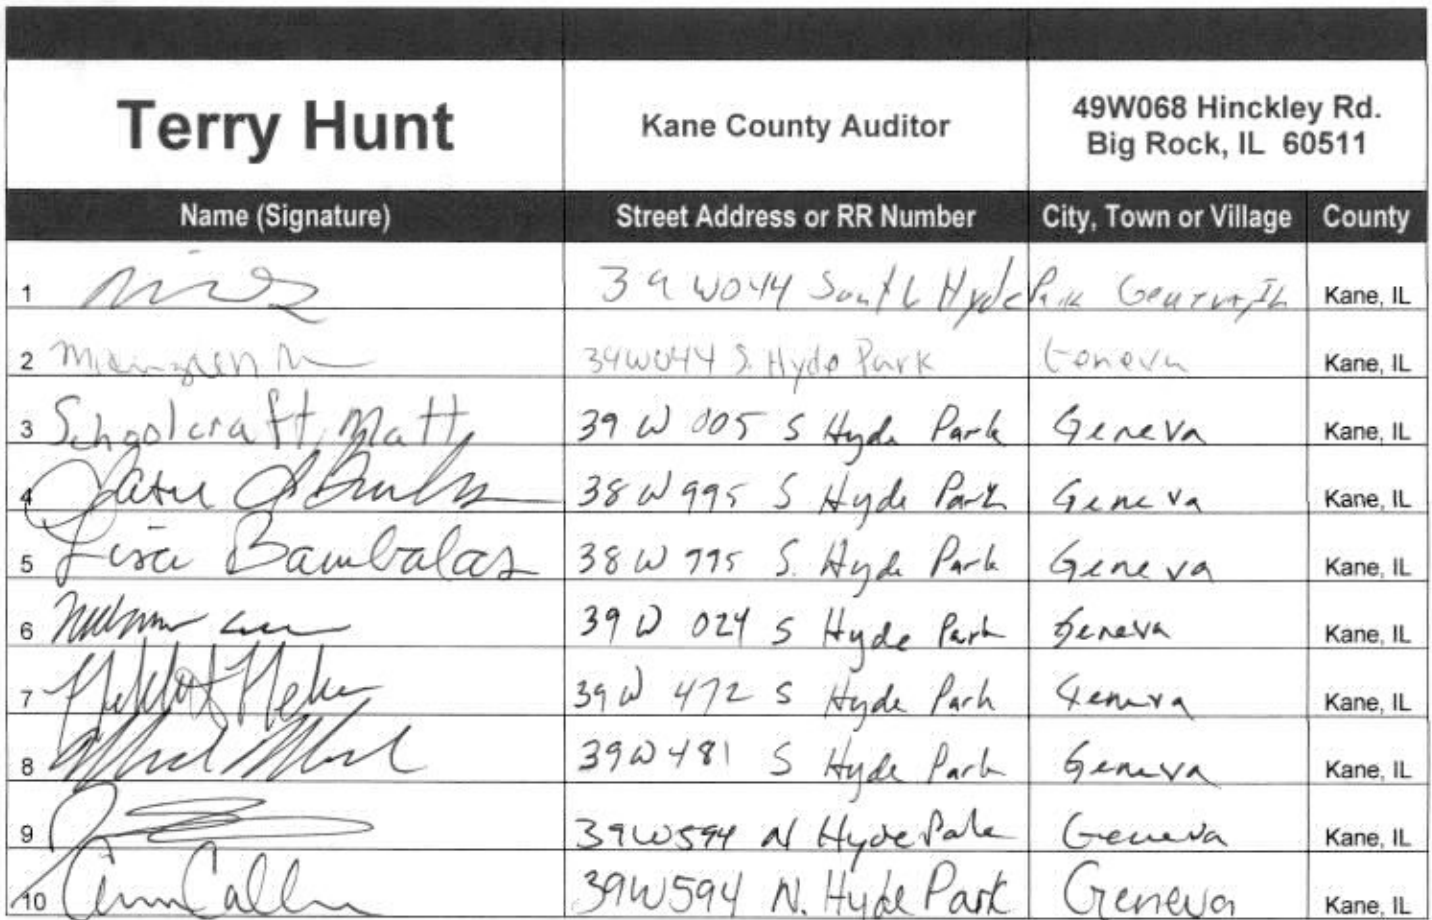 Terry Hunt
Kane County Auditor
49W068 Hinckley Rd.
Big Rock, IL 60511
Name (Signature) Street Address or RR Number City, Town or Village County
1 39W044 South Hyde Park Geneva, IL Kane, IL
2 39W044 S. Hyde Park Geneva Kane, IL
3 Schoolcraft, Matt 39 W 005 S Hyde Park Geneva Kane, IL
4 38 W 995 S Hyde Park Geneva Kane, IL
5 Lisa Bambalas 38 W 995 S. Hyde Park Geneva Kane, IL
6 39 W 024 S Hyde Park Geneva Kane, IL
7 39 W 472 S Hyde Park Geneva Kane, IL
8 39W481 S Hyde Park Geneva Kane, IL
9 39W594 N Hyde Park Geneva Kane, IL
10 39W594 N. Hyde Park Geneva Kane, IL